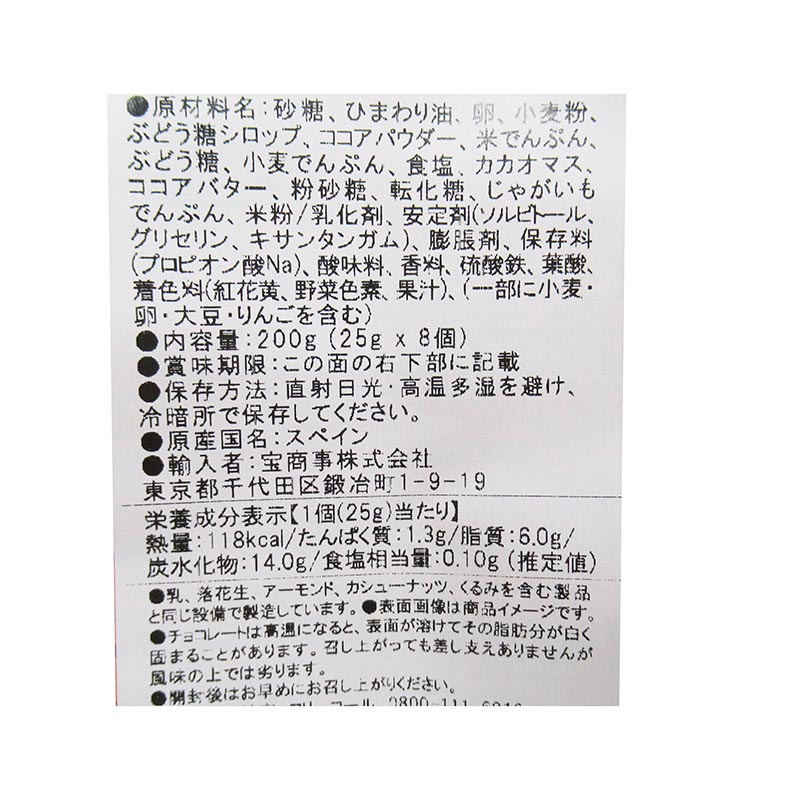 ●原材料名：砂糖、ひまわり油、卵、小麦粉、
ぶどう糖シロップ、ココアパウダー、米でんぷん、
ぶどう糖、小麦でんぷん、食塩、カカオマス、
ココアバター、粉砂糖、転化糖、じゃがいも
でんぷん、米粉/乳化剤、安定剤(ソルビトール、
グリセリン、キサンタンガム)、膨脹剤、保存料
(プロピオン酸Na)、酸味料、香料、硫酸鉄、葉酸、
着色料(紅花黄、野菜色素、果汁)、(一部に小麦・
卵・大豆・りんごを含む)
●内容量：200g (25g x 8個)
●賞味期限：この面の右下部に記載
●保存方法：直射日光・高温多湿を避け、
冷暗所で保存してください。
●原産国名：スペイン
●輸入者：宝商事株式会社
東京都千代田区鍛冶町1-9-19
栄養成分表示【1個(25g)当たり】
熱量：118kcal/たんぱく質：1.3g/脂質：6.0g/
炭水化物：14.0g/食塩相当量：0.10g (推定値)
●乳、落花生、アーモンド、カシューナッツ、くるみを含む製品
と同じ設備で製造しています。●表面画像は商品イメージです。
●チョコレートは高温になると、表面が溶けてその脂肪分が白く
固まることがあります。召し上がっても差し支えありませんが
風味の上では劣ります。
●開封後はお早めにお召し上がりください。